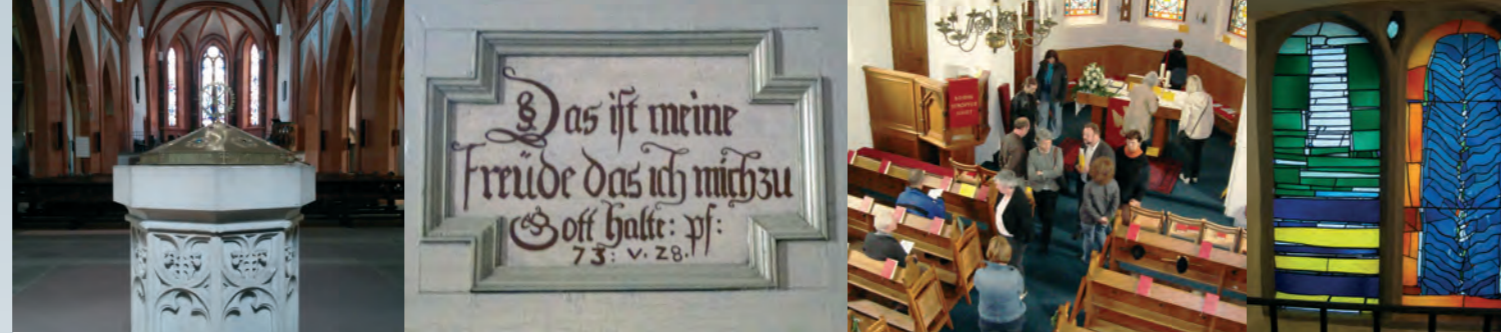 Das ist meine
Freüde das ich mich zu
Gott halte: ps:
73: v. 28.